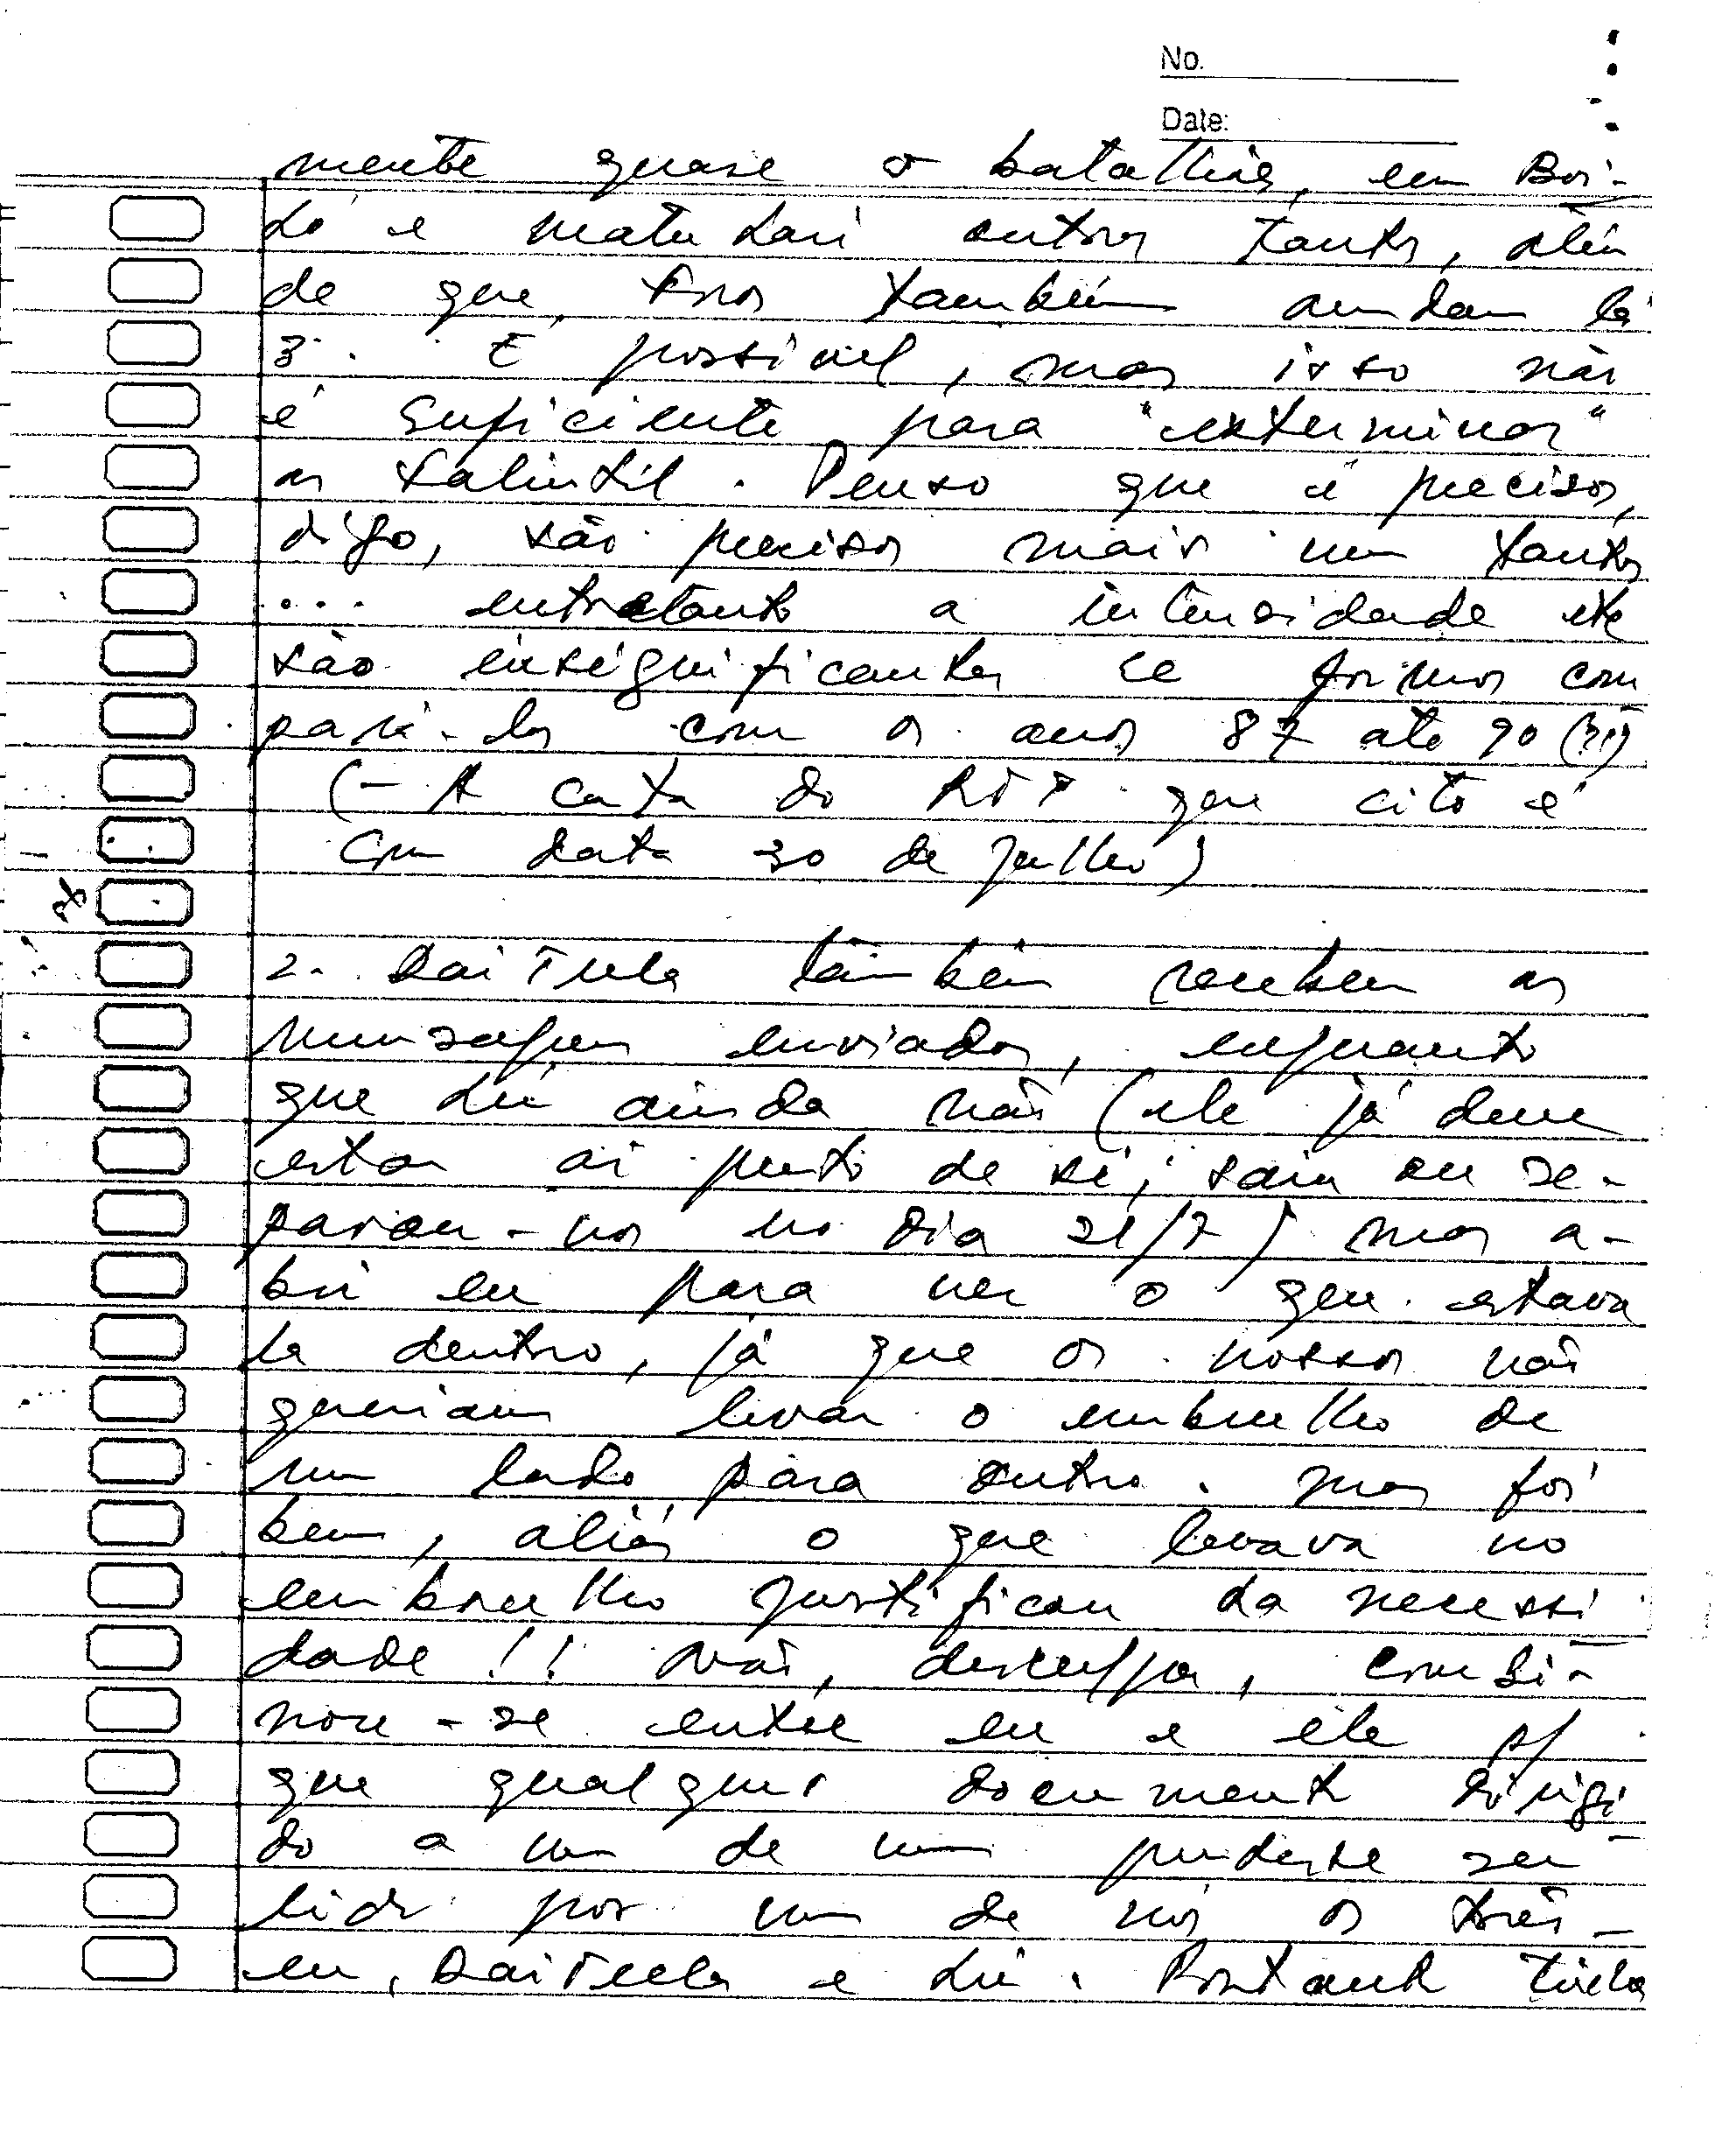 No.
Date:
mente quase o batalhão, em Boi-
ló e Matadari outros tantos, além
de que, também andam lá
3. É possível, mas isso não
é suficiente para "exterminar"
as Falintil. Penso que é precisos,
digo, são precisos mais um tantos
... entretanto a intensidade etc
são insignificantes se formos com
pará-los com os anos 87 até 90 (?!)
(- A carta do que cito é
com data 30 de julho)
2. Daitula também recebeu as
mensagens enviadas, enquanto
que Lu ainda não (ele já deve
estar aí perto de si; saiu ou se-
parou-nos no dia 21/7) mas a-
bri eu para ver o que estava
lá dentro, já que os nossos não
queriam levar o embrulho de
um lado para outro. Mas foi
bem, aliás o que levava no
embrulho justificou da necessi
dade!! Não, desculpa, combi-
nou-se entre eu e ele p/
que qualquer documento dirigi
do a um de nós pudesse ser
lido por um de nós os três -
eu, Daitula e Lu. Portanto